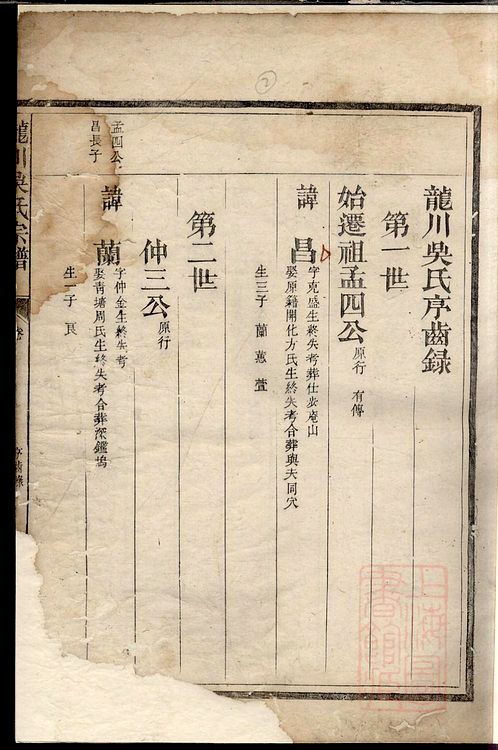 ②
龍川吳氏序齒錄
第一世
始遷祖孟四公 原行 有傳
諱 昌 字克盛生終失考葬仕步庵山
娶原籍開化方氏生終失考合葬與夫同穴
生三子 蘭 蕙 萱
第二世
仲三公 原行
孟四公
昌長子
諱 蘭 字仲金生終失考
娶靑塘周氏生終失考合葬深鑑塢
生一子 良
龍川吳氏宗譜
卷
序齒錄
上海圖書館藏